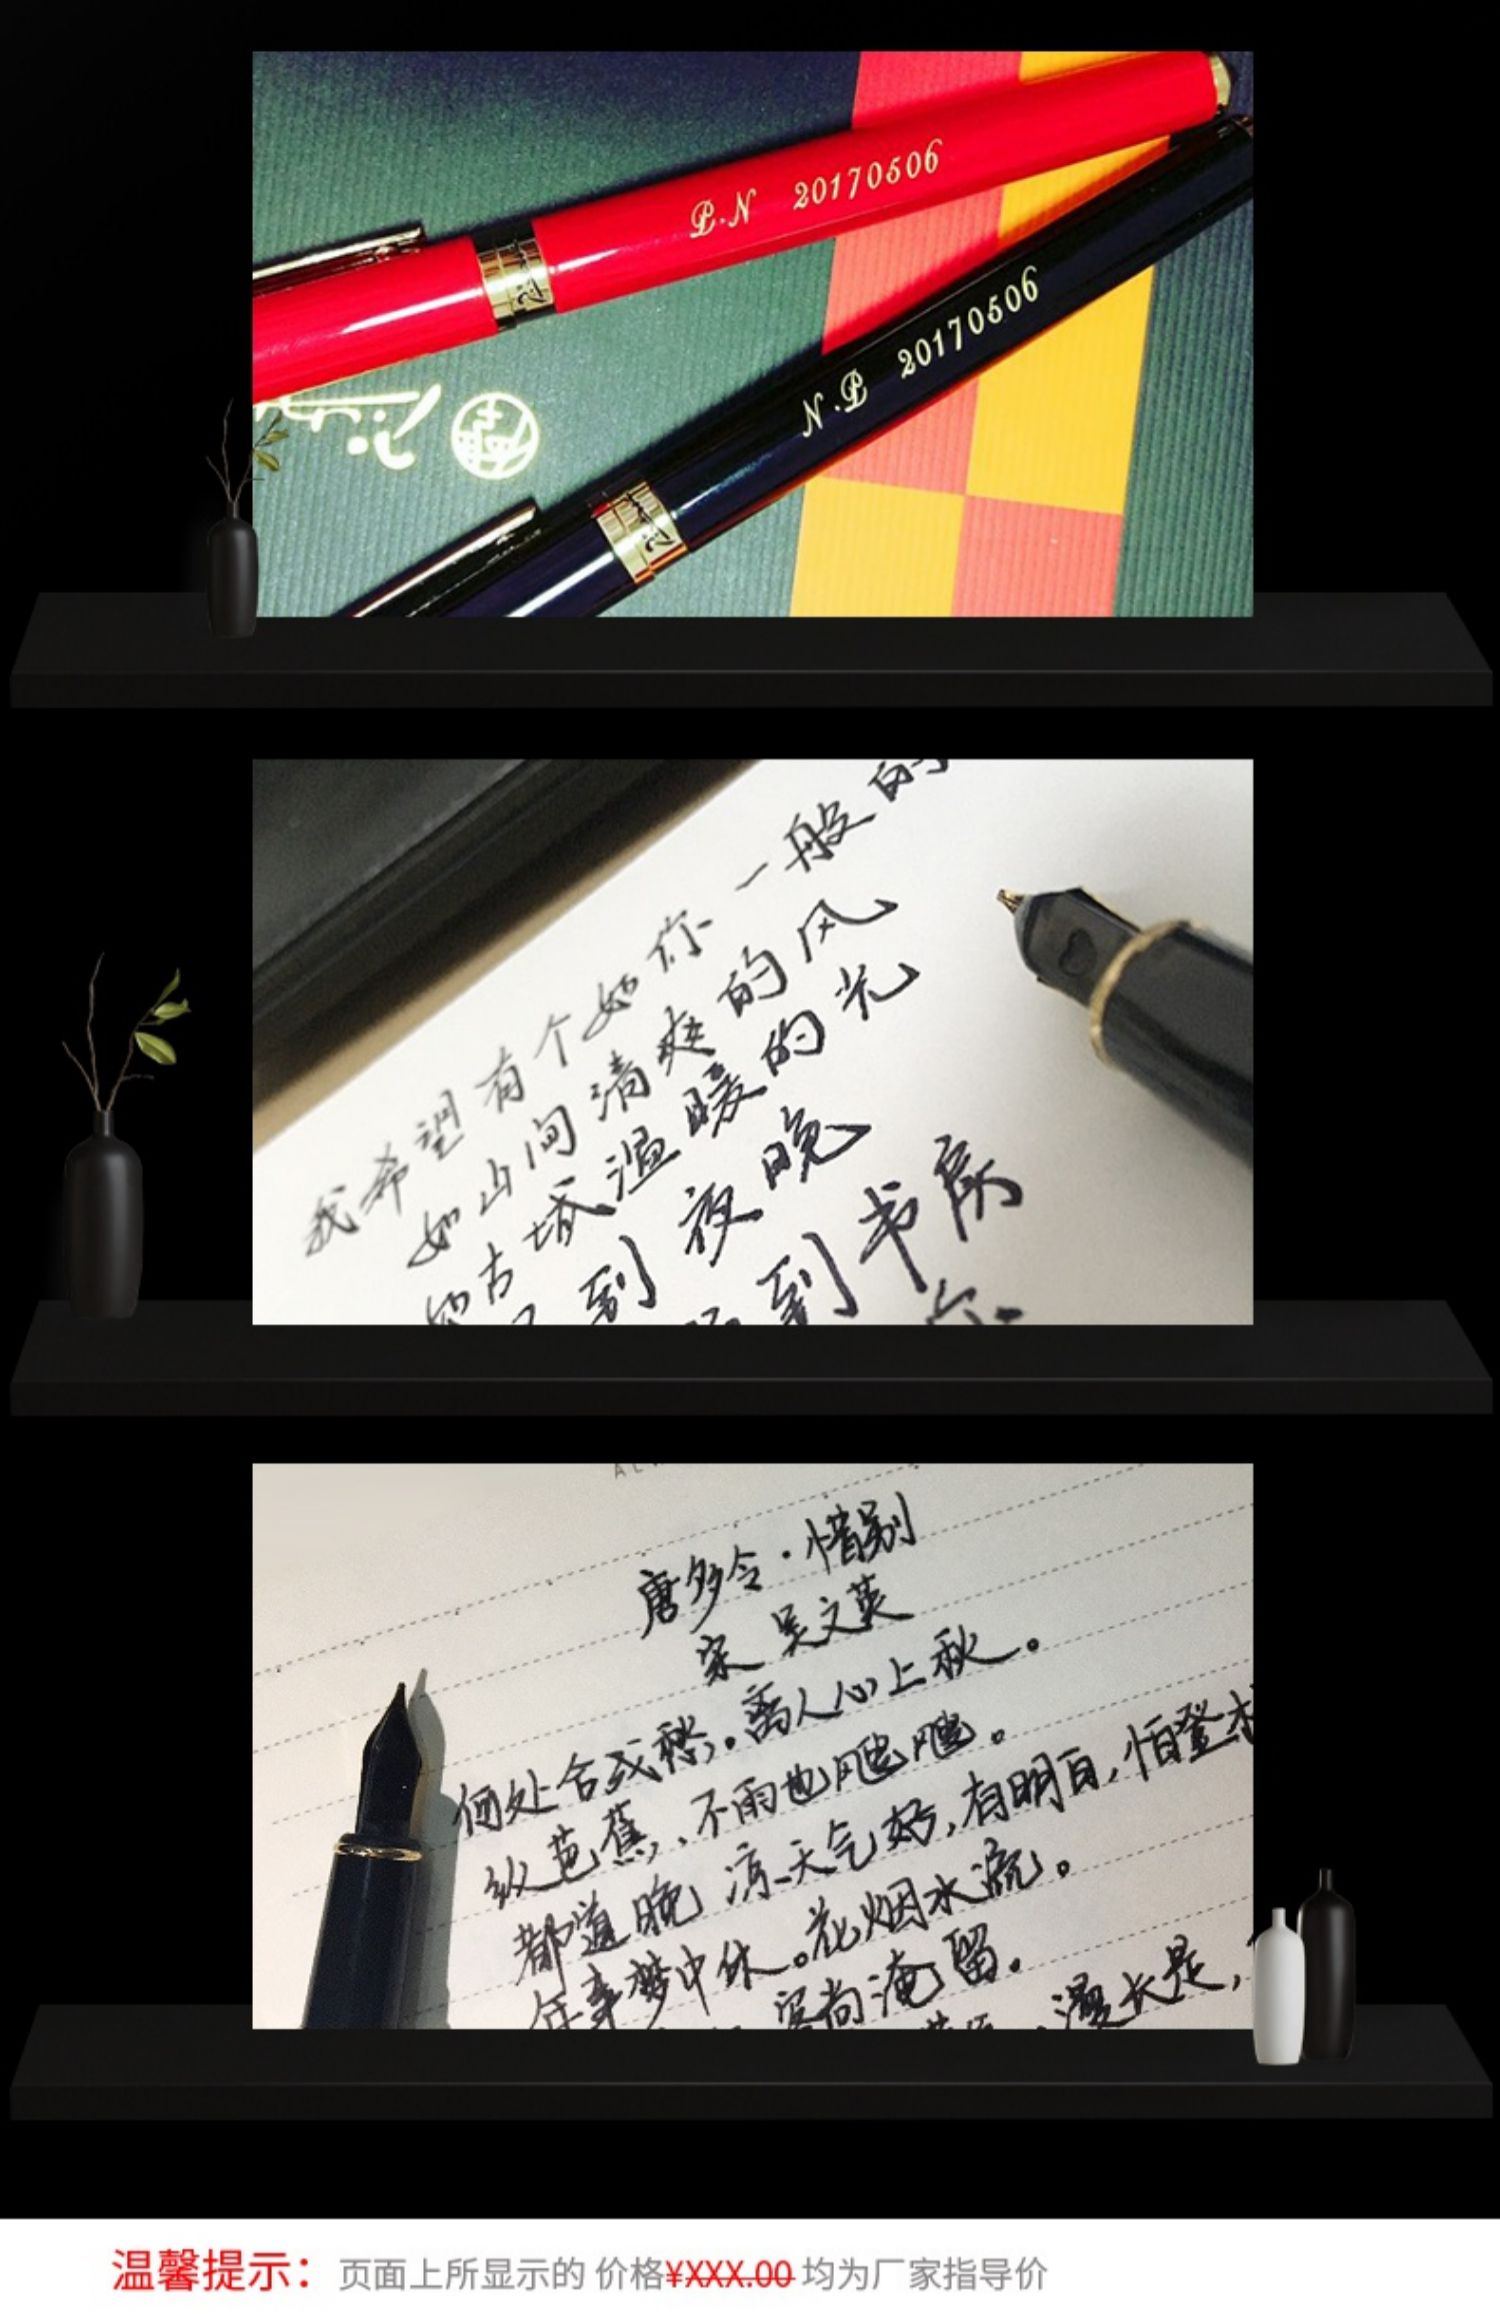 P.N 20170506
N.P 20170506
我希望有个如你一般的
如山间清爽的风
如古城温暖的光
到夜晚
到书房
唐多令·惜别
宋 吴文英
何处合成愁。离人心上秋。
纵芭蕉、不雨也飕飕。
都道晚凉天气好,有明月,怕登
年事梦中休。花烟水流。
客尚淹留。
漫长是,
温馨提示：页面上所显示的 价格¥XXX.00 均为厂家指导价